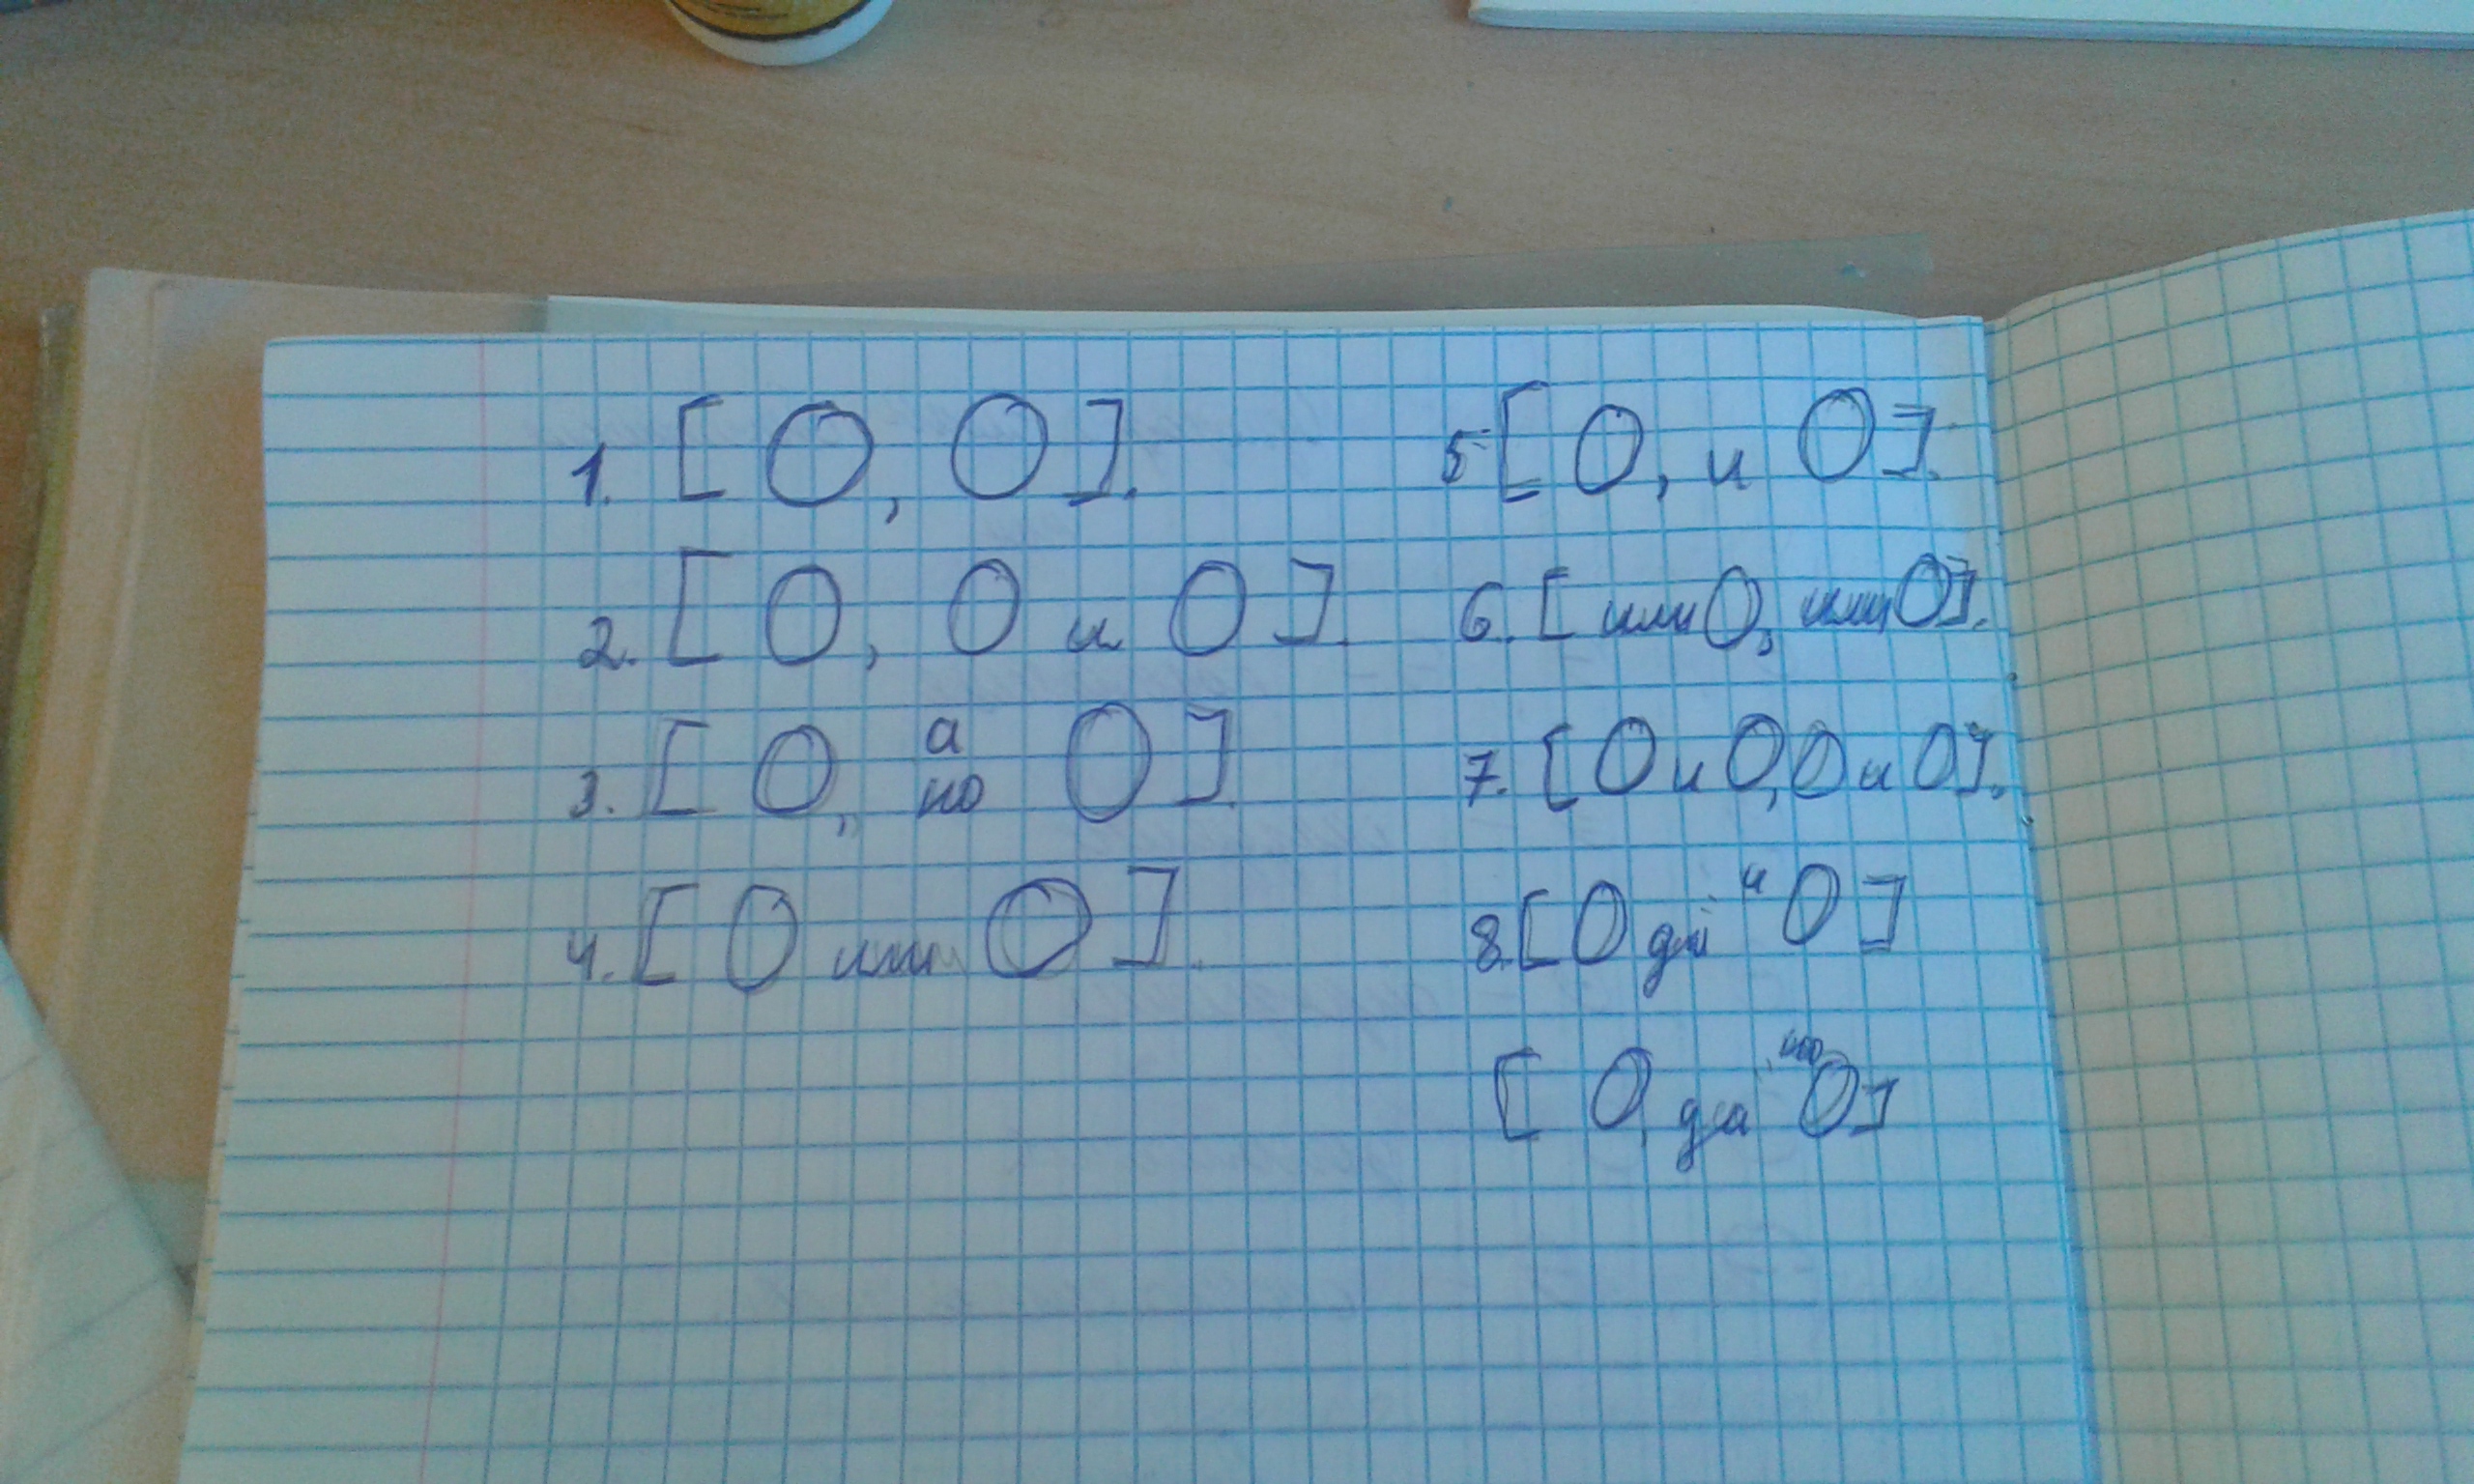 1. [ O, O ].
2. [ O, O и O ].
3. [ O, а но O ].
4. [ O или O ].
5 [ O, и O ].
6. [ или O, или O ].
7. [ O и O, O и O ].
8. [ O да и O ]
[ O, да но O ]